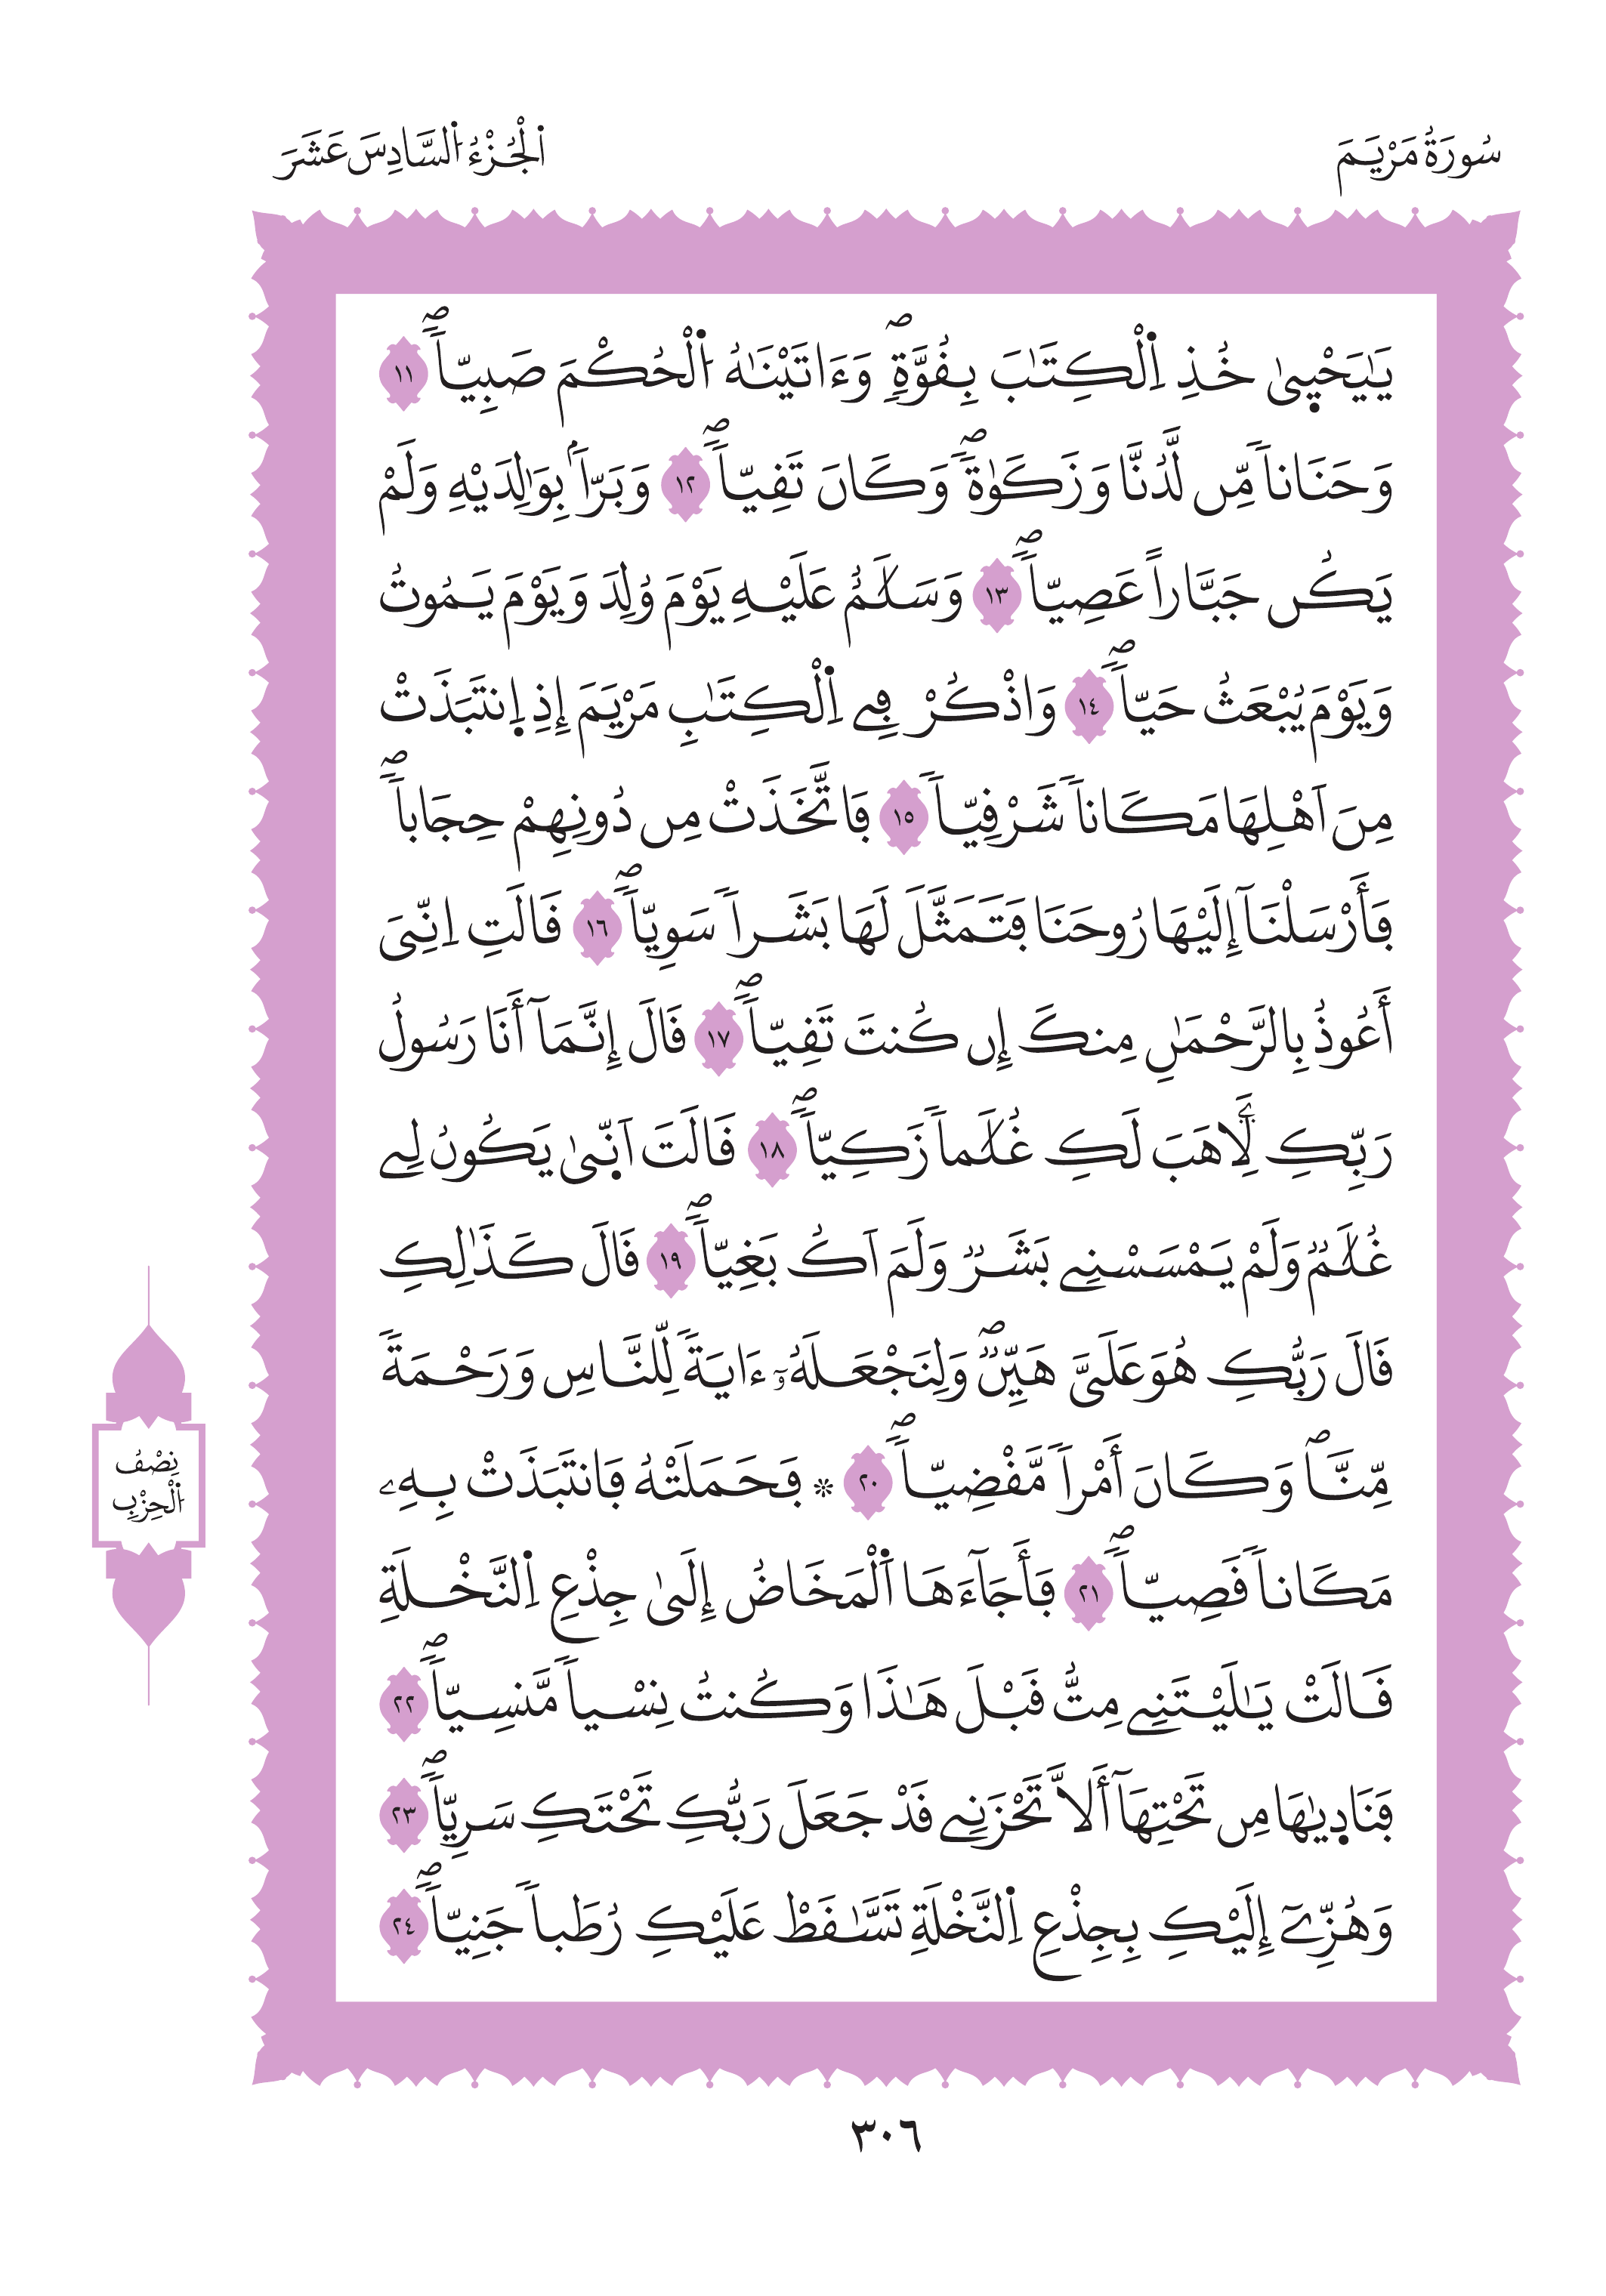 سُورَةُ مَرْيَمَ
اَ۬لْجُزْءُ اُ۬لسَّادِسَ عَشَرَ
يَٰيَحْيۭيٰ خُذِ اِ۬لْكِتَٰبَ بِقُوَّةٖۖ وَءَاتَيْنَٰهُ اُ۬لْحُكْمَ صَبِيّاٗۖ ١١
وَحَنَاناٗ مِّن لَّدُنَّا وَزَكَوٰةٗۖ وَكَانَ تَقِيّاٗۖ ١٢ وَبَرّاَۢ بِوَٰلِدَيْهِ وَلَمْ
يَكُن جَبَّاراً عَصِيّاٗۖ ١٣ وَسَلَٰمٌ عَلَيْهِ يَوْمَ وُلِدَ وَيَوْمَ يَمُوتُ
وَيَوْمَ يُبْعَثُ حَيّاٗۖ ١٤ وَاذْكُرْ فِے اِ۬لْكِتَٰبِ مَرْيَمَ إِذِ اِ۪نتَبَذَتْ
مِنَ اَهْلِهَا مَكَاناٗ شَرْقِيّاٗ ١٥ فَاتَّخَذَتْ مِن دُونِهِمْ حِجَاباٗۖ
فَأَرْسَلْنَآ إِلَيْهَا رُوحَنَا فَتَمَثَّلَ لَهَا بَشَراٗ سَوِيّاٗۖ ١٦ قَالَتِ اِنِّيَ
أَعُوذُ بِالرَّحْمَٰنِ مِنكَ إِن كُنتَ تَقِيّاٗۖ ١٧ قَالَ إِنَّمَآ أَنَا رَسُولُ
رَبِّكِ لِأَهَبَ لَكِ غُلَٰماٗ زَكِيّاٗۖ ١٨ قَالَتَ اَنّ۪يٰ يَكُونُ لِے
غُلَٰمٞ وَلَمْ يَمْسَسْنِے بَشَرٞ وَلَمَ اَكُ بَغِيّاٗۖ ١٩ قَالَ كَذَٰلِكِ
قَالَ رَبُّكِ هُوَ عَلَيَّ هَيِّنٞۖ وَلِنَجْعَلَهُۥٓ ءَايَةٗ لِّلنَّاسِ وَرَحْمَةٗ
مِّنَّاۖ وَكَانَ أَمْراٗ مَّقْضِيّاٗۖ ٢٠ ۞ فَحَمَلَتْهُ فَانتَبَذَتْ بِهِۦ
مَكَاناٗ قَصِيّاٗۖ ٢١ فَأَجَآءَهَا اَ۬لْمَخَاضُ إِلَيٰ جِذْعِ اِ۬لنَّخْلَةِ
قَالَتْ يَٰلَيْتَنِے مِتُّ قَبْلَ هَٰذَا وَكُنتُ نِسْياٗ مَّنسِيّاٗۖ ٢٢
فَنَاد۪يٰهَا مِن تَحْتِهَآ أَلَّا تَحْزَنِے قَدْ جَعَلَ رَبُّكِ تَحْتَكِ سَرِيّاٗۖ ٢٣
وَهُزِّےٓ إِلَيْكِ بِجِذْعِ اِ۬لنَّخْلَةِ تَسَّٰقَطْ عَلَيْكِ رُطَباٗ جَنِيّاٗۖ ٢٤
نِصْفُ
اُ۬لْحِزْبِ
٣٠٦